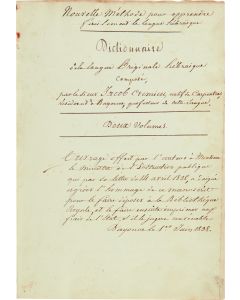 Nouvelle Méthode pour apprendre
la langue hébraïque
Dictionnaire
de la langue Originale hébraïque
composé,
par le sieur Jacob Cremieu natif de Carpentras
résidant à Bayonne, professeur de cette langue.
Deux Volumes.
L'ouvrage offert par l'auteur à Monsieur
le ministre de l'Instruction publique
qui par sa lettre du 14 avril 1838, a daigné
agréer l'hommage de ce manuscrit
pour le faire déposer à la Bibliothèque
Royale, et le faire ensuite imprimer aux
frais de l'Etat, s'il le juge
Bayonne le 1er Juin 1838.